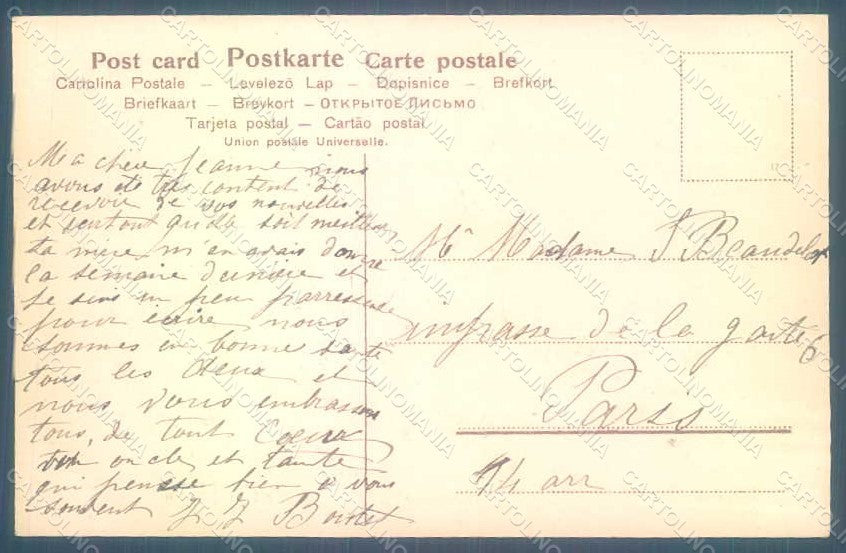 Post card Postkarte Carte postale
Cartolina Postale – Levelező Lap – Dopisnice – Brefkort
Briefkaart – Brevkort – ОТКРЫТОЕ ПИСЬМО
Tarjeta postal – Cartão postal
Union postale Universelle.
Ma chere Jeanne nous
avons ete tres content de
recevoir de vos nouvelles
et surtout quelle soit meilleur
ta mere m'en avais donne
la semaine derniere et
je suis un peu parresseuse
pour ecrire nous
sommes en bonne sante
tous les deux et
nous vous embrassons
tous, de tout coeur
ton oncle et tante
qui pensse bien a vous
souvent J J
Mr Madame
impasse de la gaite 6
Paris
14 arr
CARTOLINOMANIA